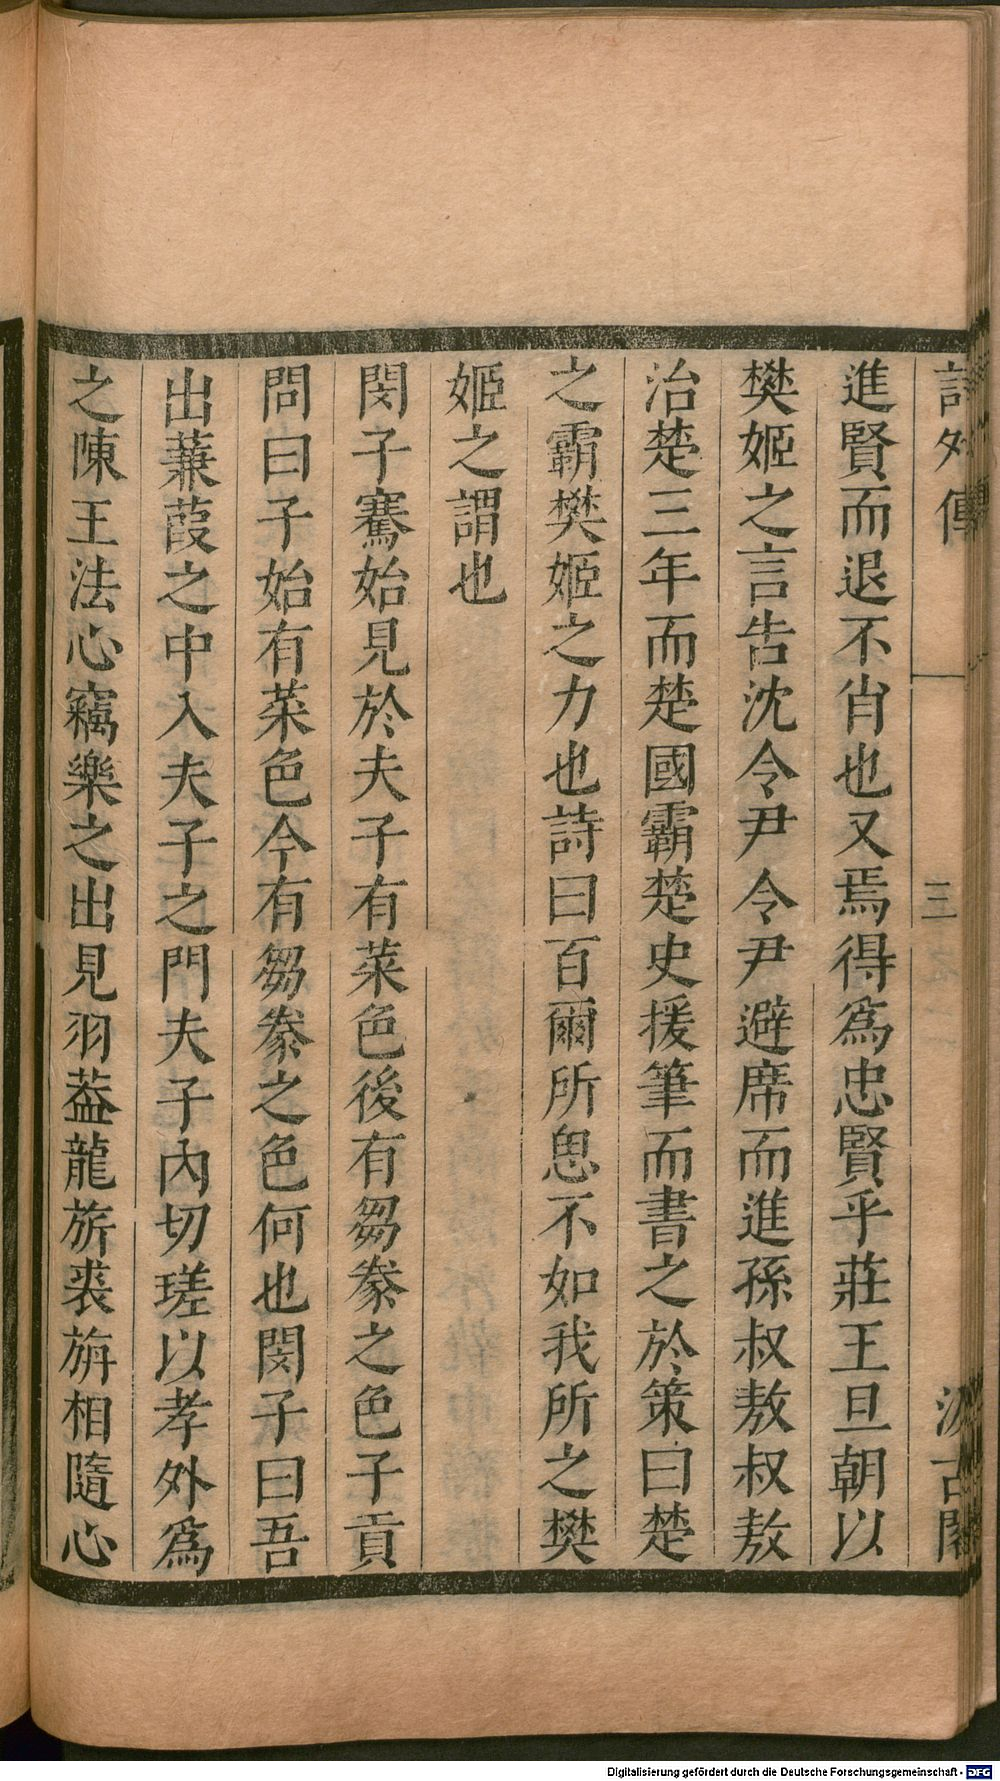 詩外傳 三 汲古閣
進賢而退不肖也又焉得爲忠賢乎莊王旦朝以
樊姬之言告沈令尹令尹避席而進孫叔敖叔敖
治楚三年而楚國霸楚史援筆而書之於策曰楚
之霸樊姬之力也詩曰百爾所思不如我所之樊
姬之謂也
閔子騫始見於夫子有菜色後有芻豢之色子貢
問曰子始有菜色今有芻豢之色何也閔子曰吾
出蒹葭之中入夫子之門夫子內切瑳以孝外爲
之陳王法心竊樂之出見羽葢龍旂裘旃相隨心
Digitalisierung gefördert durch die Deutsche Forschungsgemeinschaft - DFG